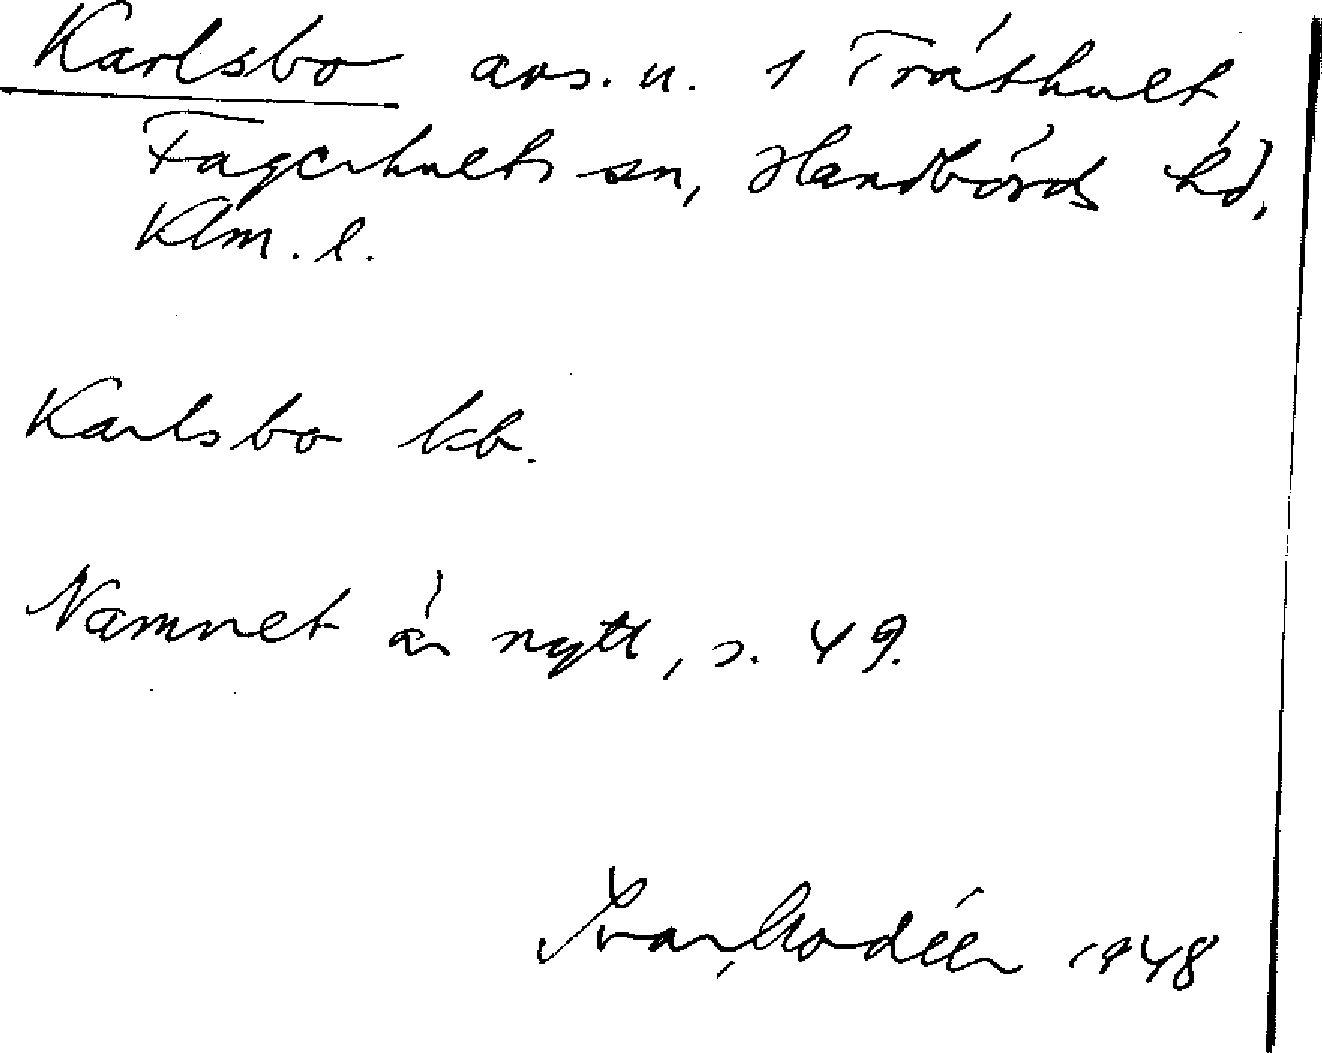 Karlsbo avs. u. 1 Träthult
Fagerhults sn, Handbörds hd,
Klm. l.
Karlsbo kb.
Namnet är nytt, s. 49.
Ivar Modéer 1948